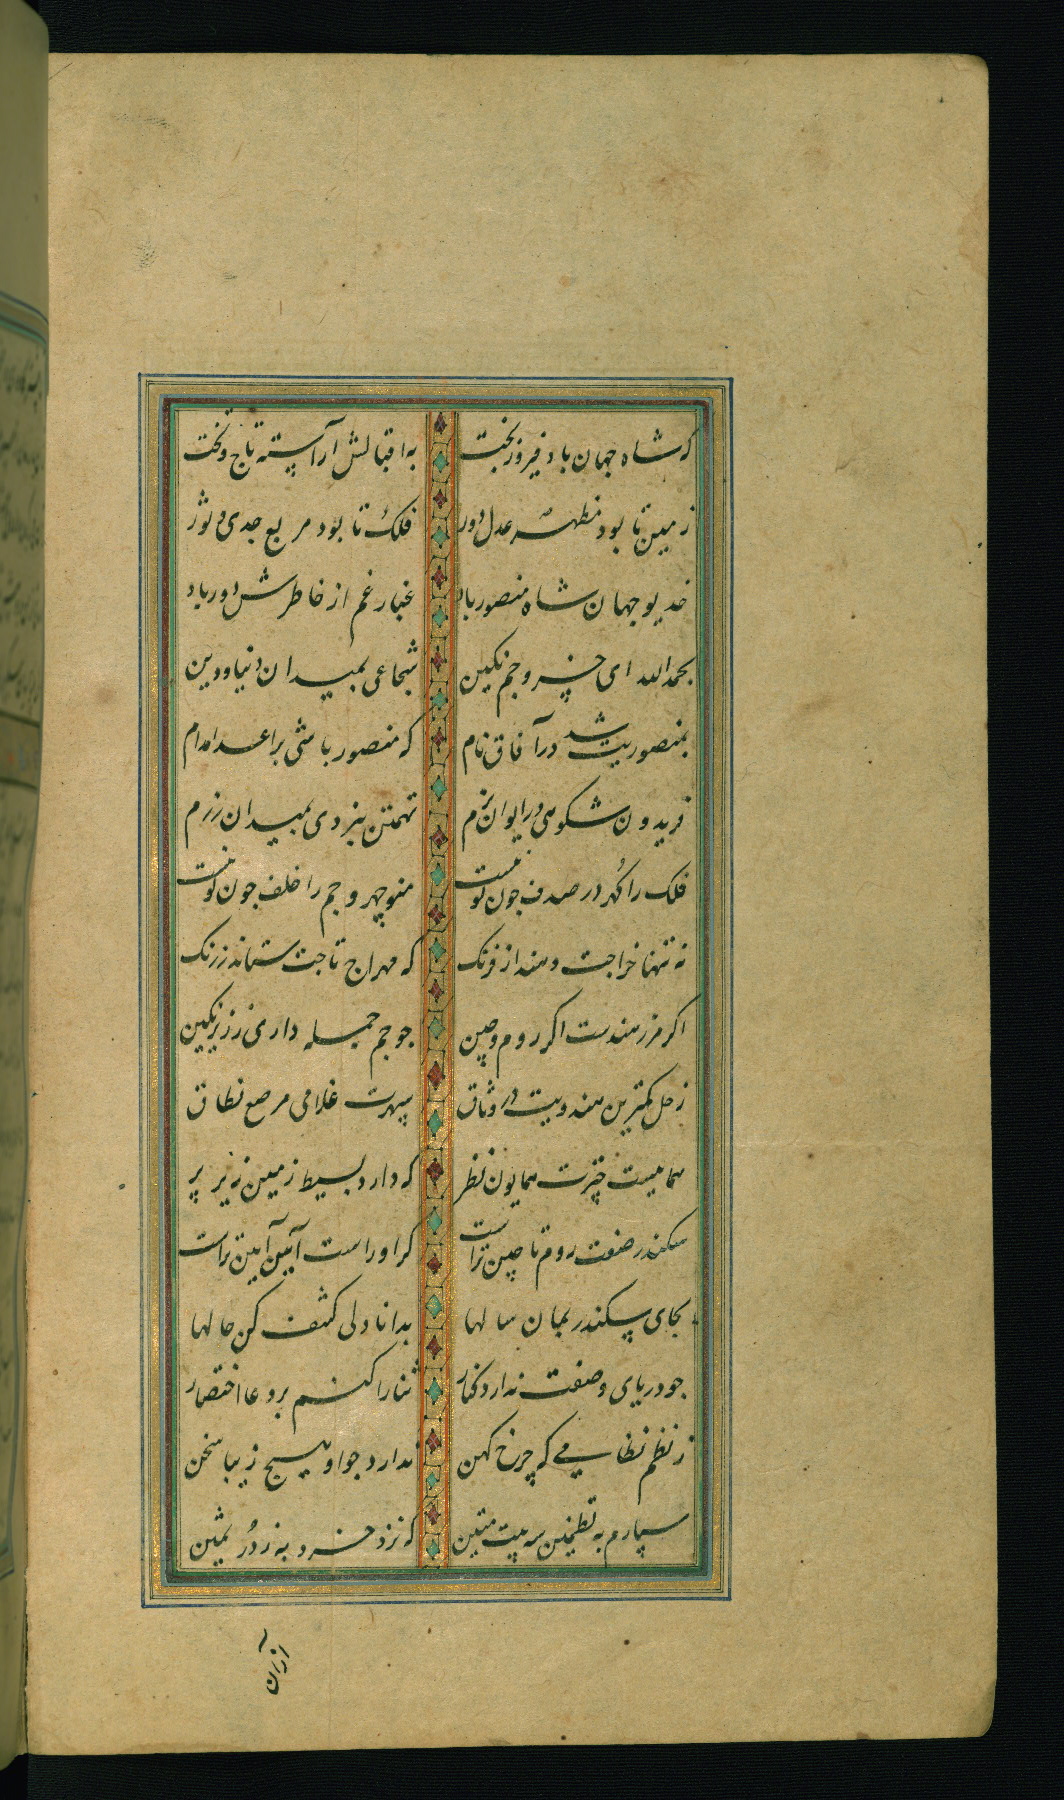 که شاه جهان باد فیروز بخت به اقبالش آراسته تاج و تخت
زمین تا بود مظهر عدل و دور فلک تا بود مربع جدی و ثور
خدیو جهان شاه منصور باد غبار غم از خاطرش دور باد
بحمدالله ای خسرو جم نکین شجاعی بمیدان دنیا و دین
بمنصوریت شد در آفاق نام که منصور باشی بر اعدا مدام
فریدون شکوهی در ایوان بزم تهمتن نبردی بمیدان رزم
فلک را گهر در صدف جون تو نیست منوچهر و جم را خلف جون تو نیست
نه تنها خراجت دهند از فرنک که مهراج تاجت ستاند ز زنک
اکر مرز هندست اکر روم و چین جو جم جمله داری ز زیر نکین
زحل کمترین هندویت در وثاق سپهرت غلامی مرصع نطاق
هماییست چترت همایون نظر که دارد بسیط زمین زیر پر
سکندر صفت روم تا چین تراست کر او راست آیین آیین تراست
بجای سکندر بمان سالها بدانا دلی کشف کن حالها
جو دریای وصفت ندارد کنار ثنا را کنم بر دعا اختصار
ز نظم نظامی که چرخ کهن ندارد جو او هیچ زیبا سخن
سپارم به تضمین سه بیت متین که نزد خرد به ز در ثمین
ازان